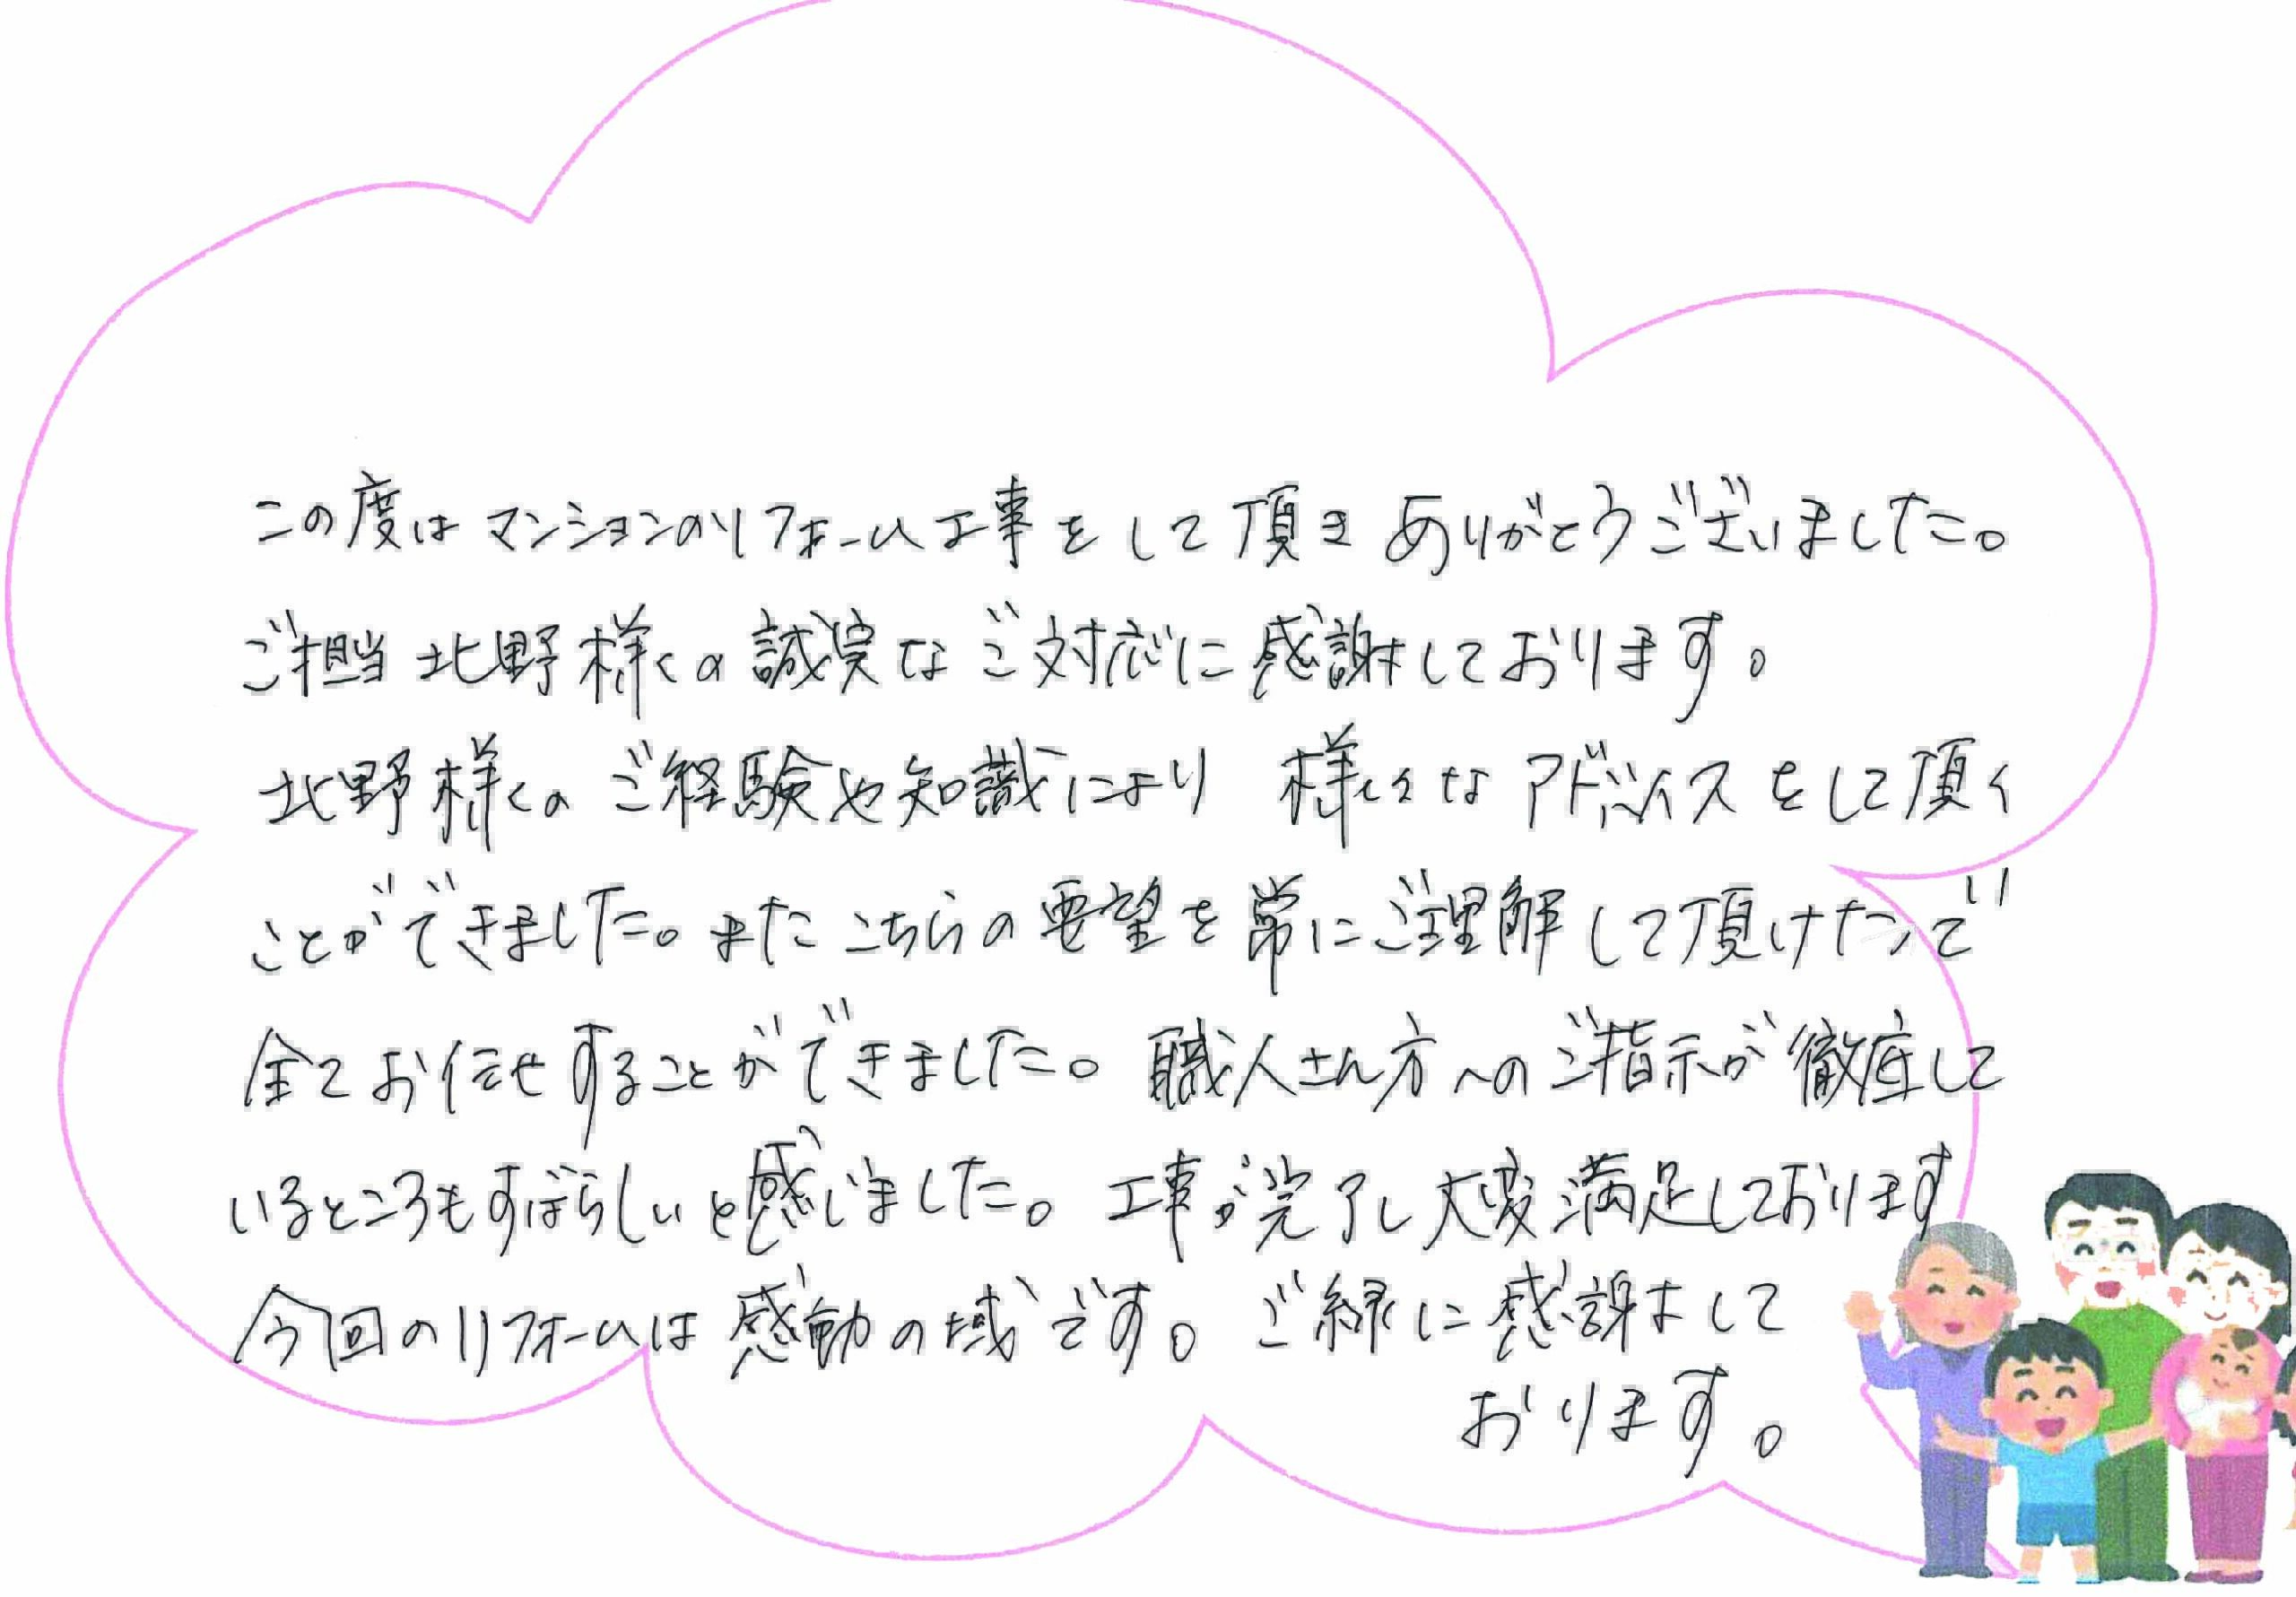 この度はマンションのリフォーム工事をして頂きありがとうございました。
ご担当北野様の誠実なご対応に感謝しております。
北野様のご経験や知識により 様々なアドバイスをして頂く
ことができました。またこちらの要望を常にご理解して頂けたので
全てお任せすることができました。職人さん方へのご指示が徹底して
いるところもすばらしいと感じました。工事が完了し大変満足しております
今回のリフォームは感動の域です。ご縁に感謝して
おります。